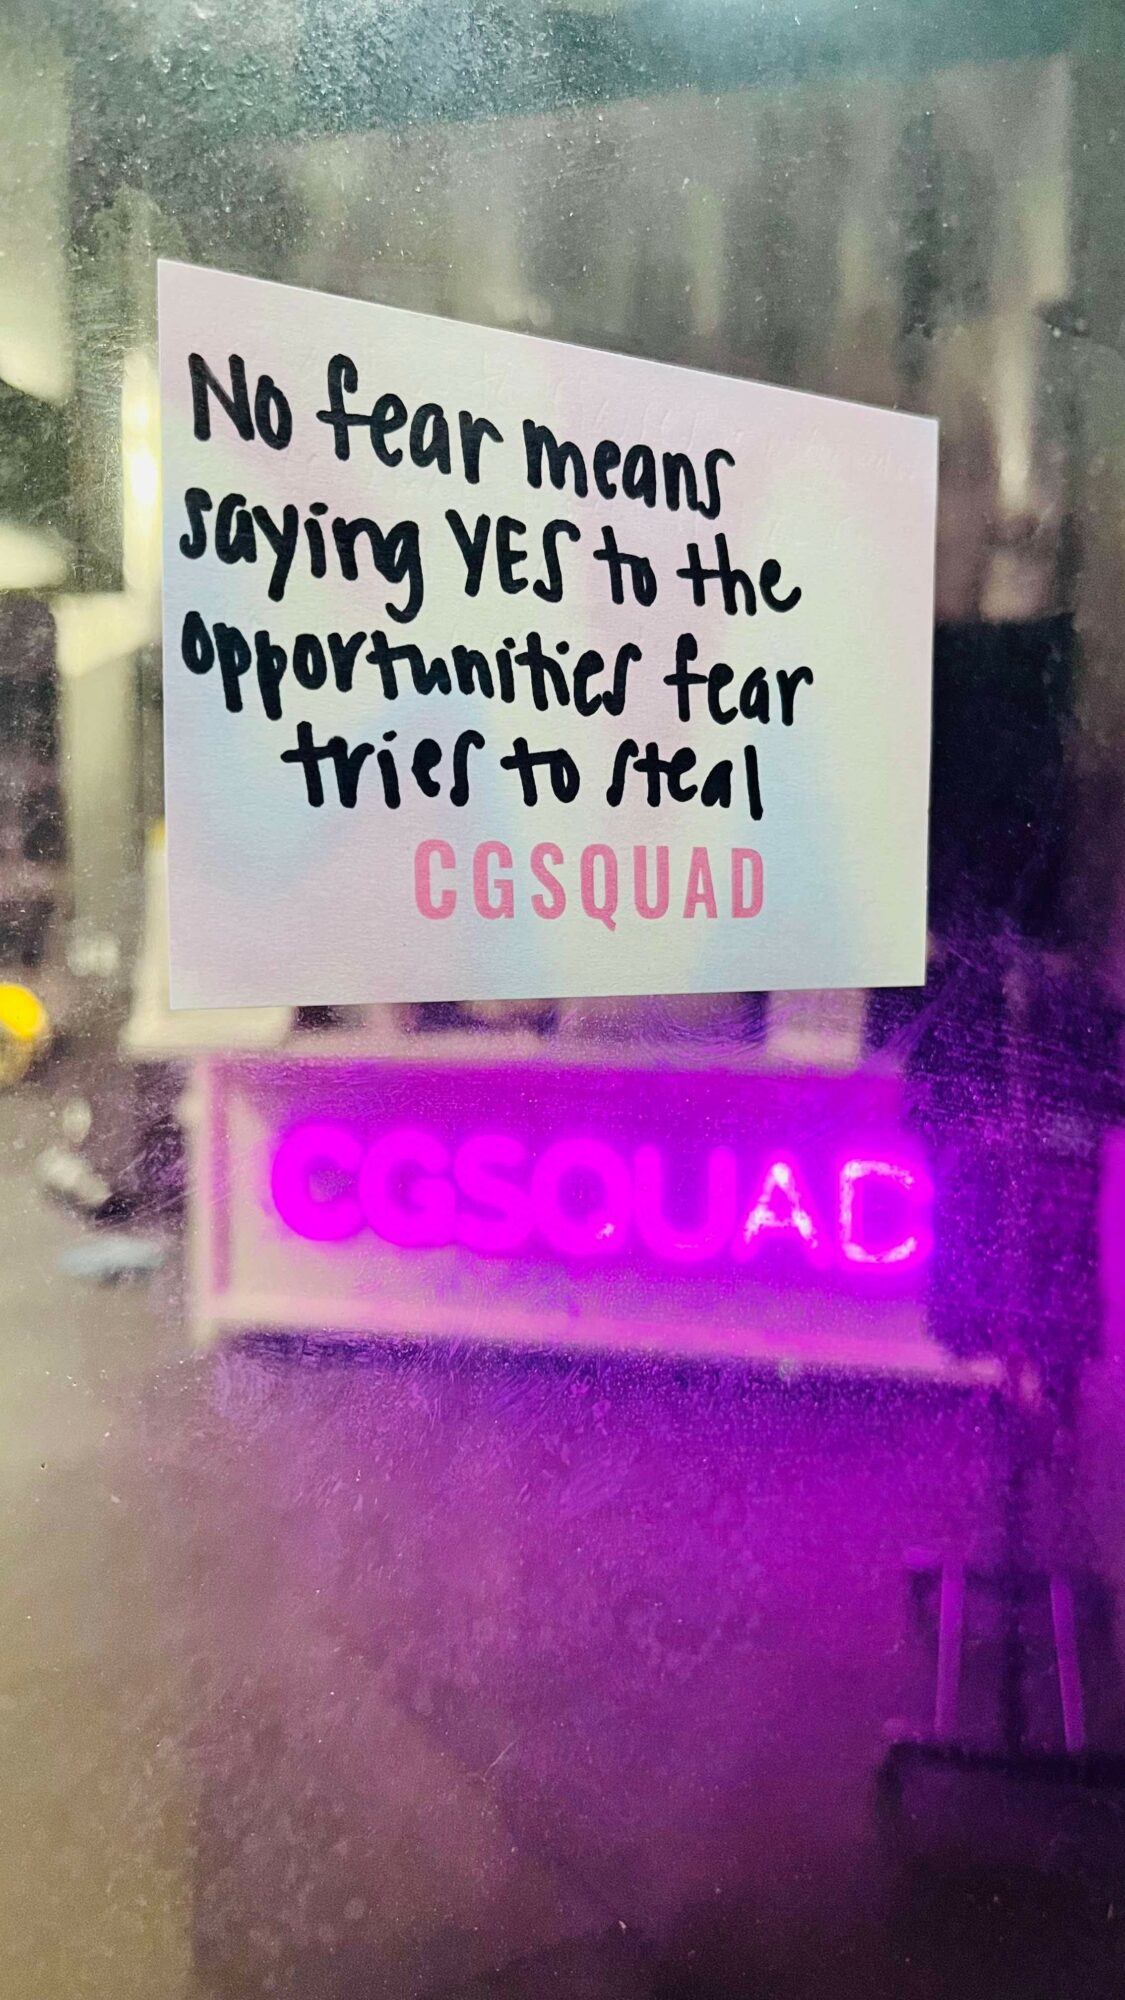 No fear means
saying YES to the
opportunities fear
tries to steal
CGSQUAD
CGSQUAD